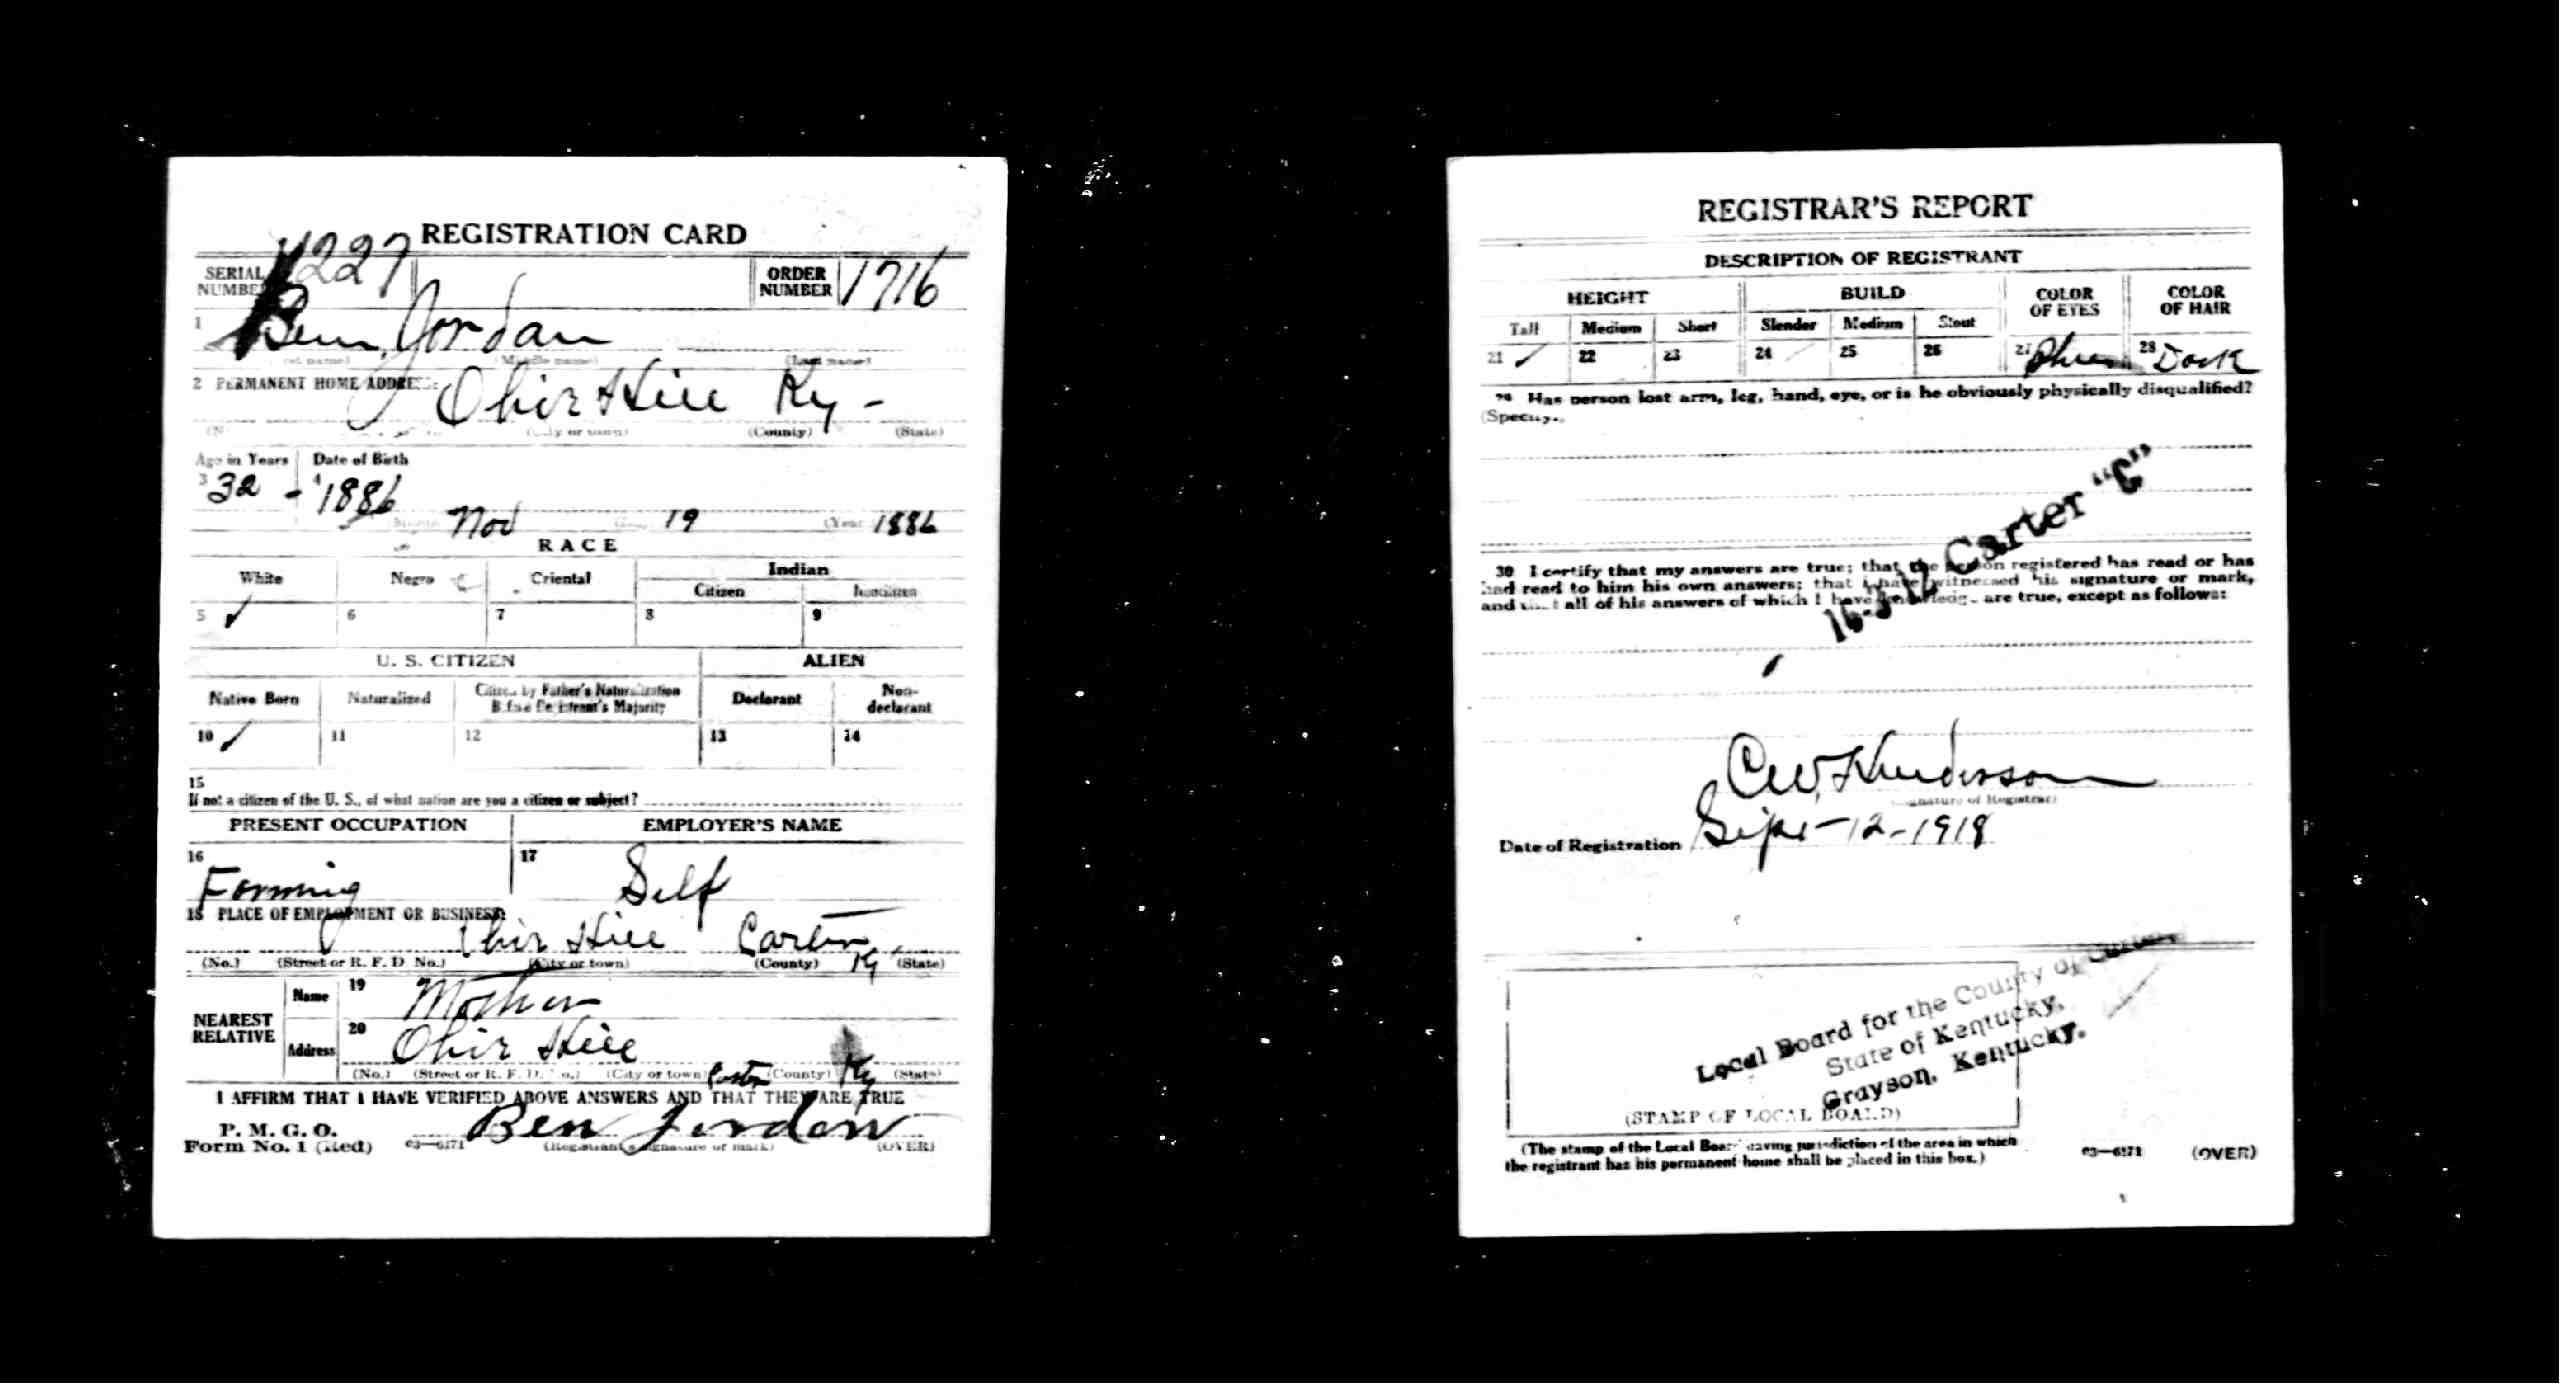 REGISTRATION CARD
SERIAL NUMBER 227
ORDER NUMBER 1716
1 Ben Jordan
(Middle name) (Last name)
2 PERMANENT HOME ADDRESS:
Ky -
(County) (State)
Age in Years Date of Birth
3 32 - 4 1886
Nov 19 1886
RACE
White Negro Oriental Indian
Citizen Noncitizen
5 ✓ 6 7 8 9
U. S. CITIZEN ALIEN
Native Born Naturalized Citizen by Father's Naturalization Before Registrant's Majority Declarant Non-declarant
10 ✓ 11 12 13 14
15
If not a citizen of the U. S., of what nation are you a citizen or subject?
PRESENT OCCUPATION EMPLOYER'S NAME
16 Farming 17 Self
18 PLACE OF EMPLOYMENT OR BUSINESS:
Carter Ky
(No.) (Street or R. F. D No.) (City or town) (County) (State)
NEAREST RELATIVE
Name 19 Mother
Address 20
Carter Ky
(No.) (Street or R. F. D. No.) (City or town) (County) (State)
I AFFIRM THAT I HAVE VERIFIED ABOVE ANSWERS AND THAT THEY ARE TRUE
P. M. G. O.
Form No. 1 (Red) 03—6171 Ben Jordon
(Registrant's signature or mark) (OVER)
REGISTRAR'S REPORT
DESCRIPTION OF REGISTRANT
HEIGHT BUILD COLOR OF EYES COLOR OF HAIR
Tall Medium Short Slender Medium Stout
21 ✓ 22 23 24 ✓ 25 26 27 Blue 28 Dark
29 Has person lost arm, leg, hand, eye, or is he obviously physically disqualified?
(Specify.)
30 I certify that my answers are true; that the person registered has read or has
had read to him his own answers; that I have witnessed his signature or mark,
and that all of his answers of which I have knowledge are true, except as follows:
16-3-12 Carter "C"
C W Henderson
(Signature of Registrar)
Date of Registration Sept - 12 - 1918
Local Board for the County of Carter,
State of Kentucky,
Grayson, Kentucky.
(STAMP OF LOCAL BOARD)
(The stamp of the Local Board having jurisdiction of the area in which
the registrant has his permanent home shall be placed in this box.)
03—6171 (OVER)